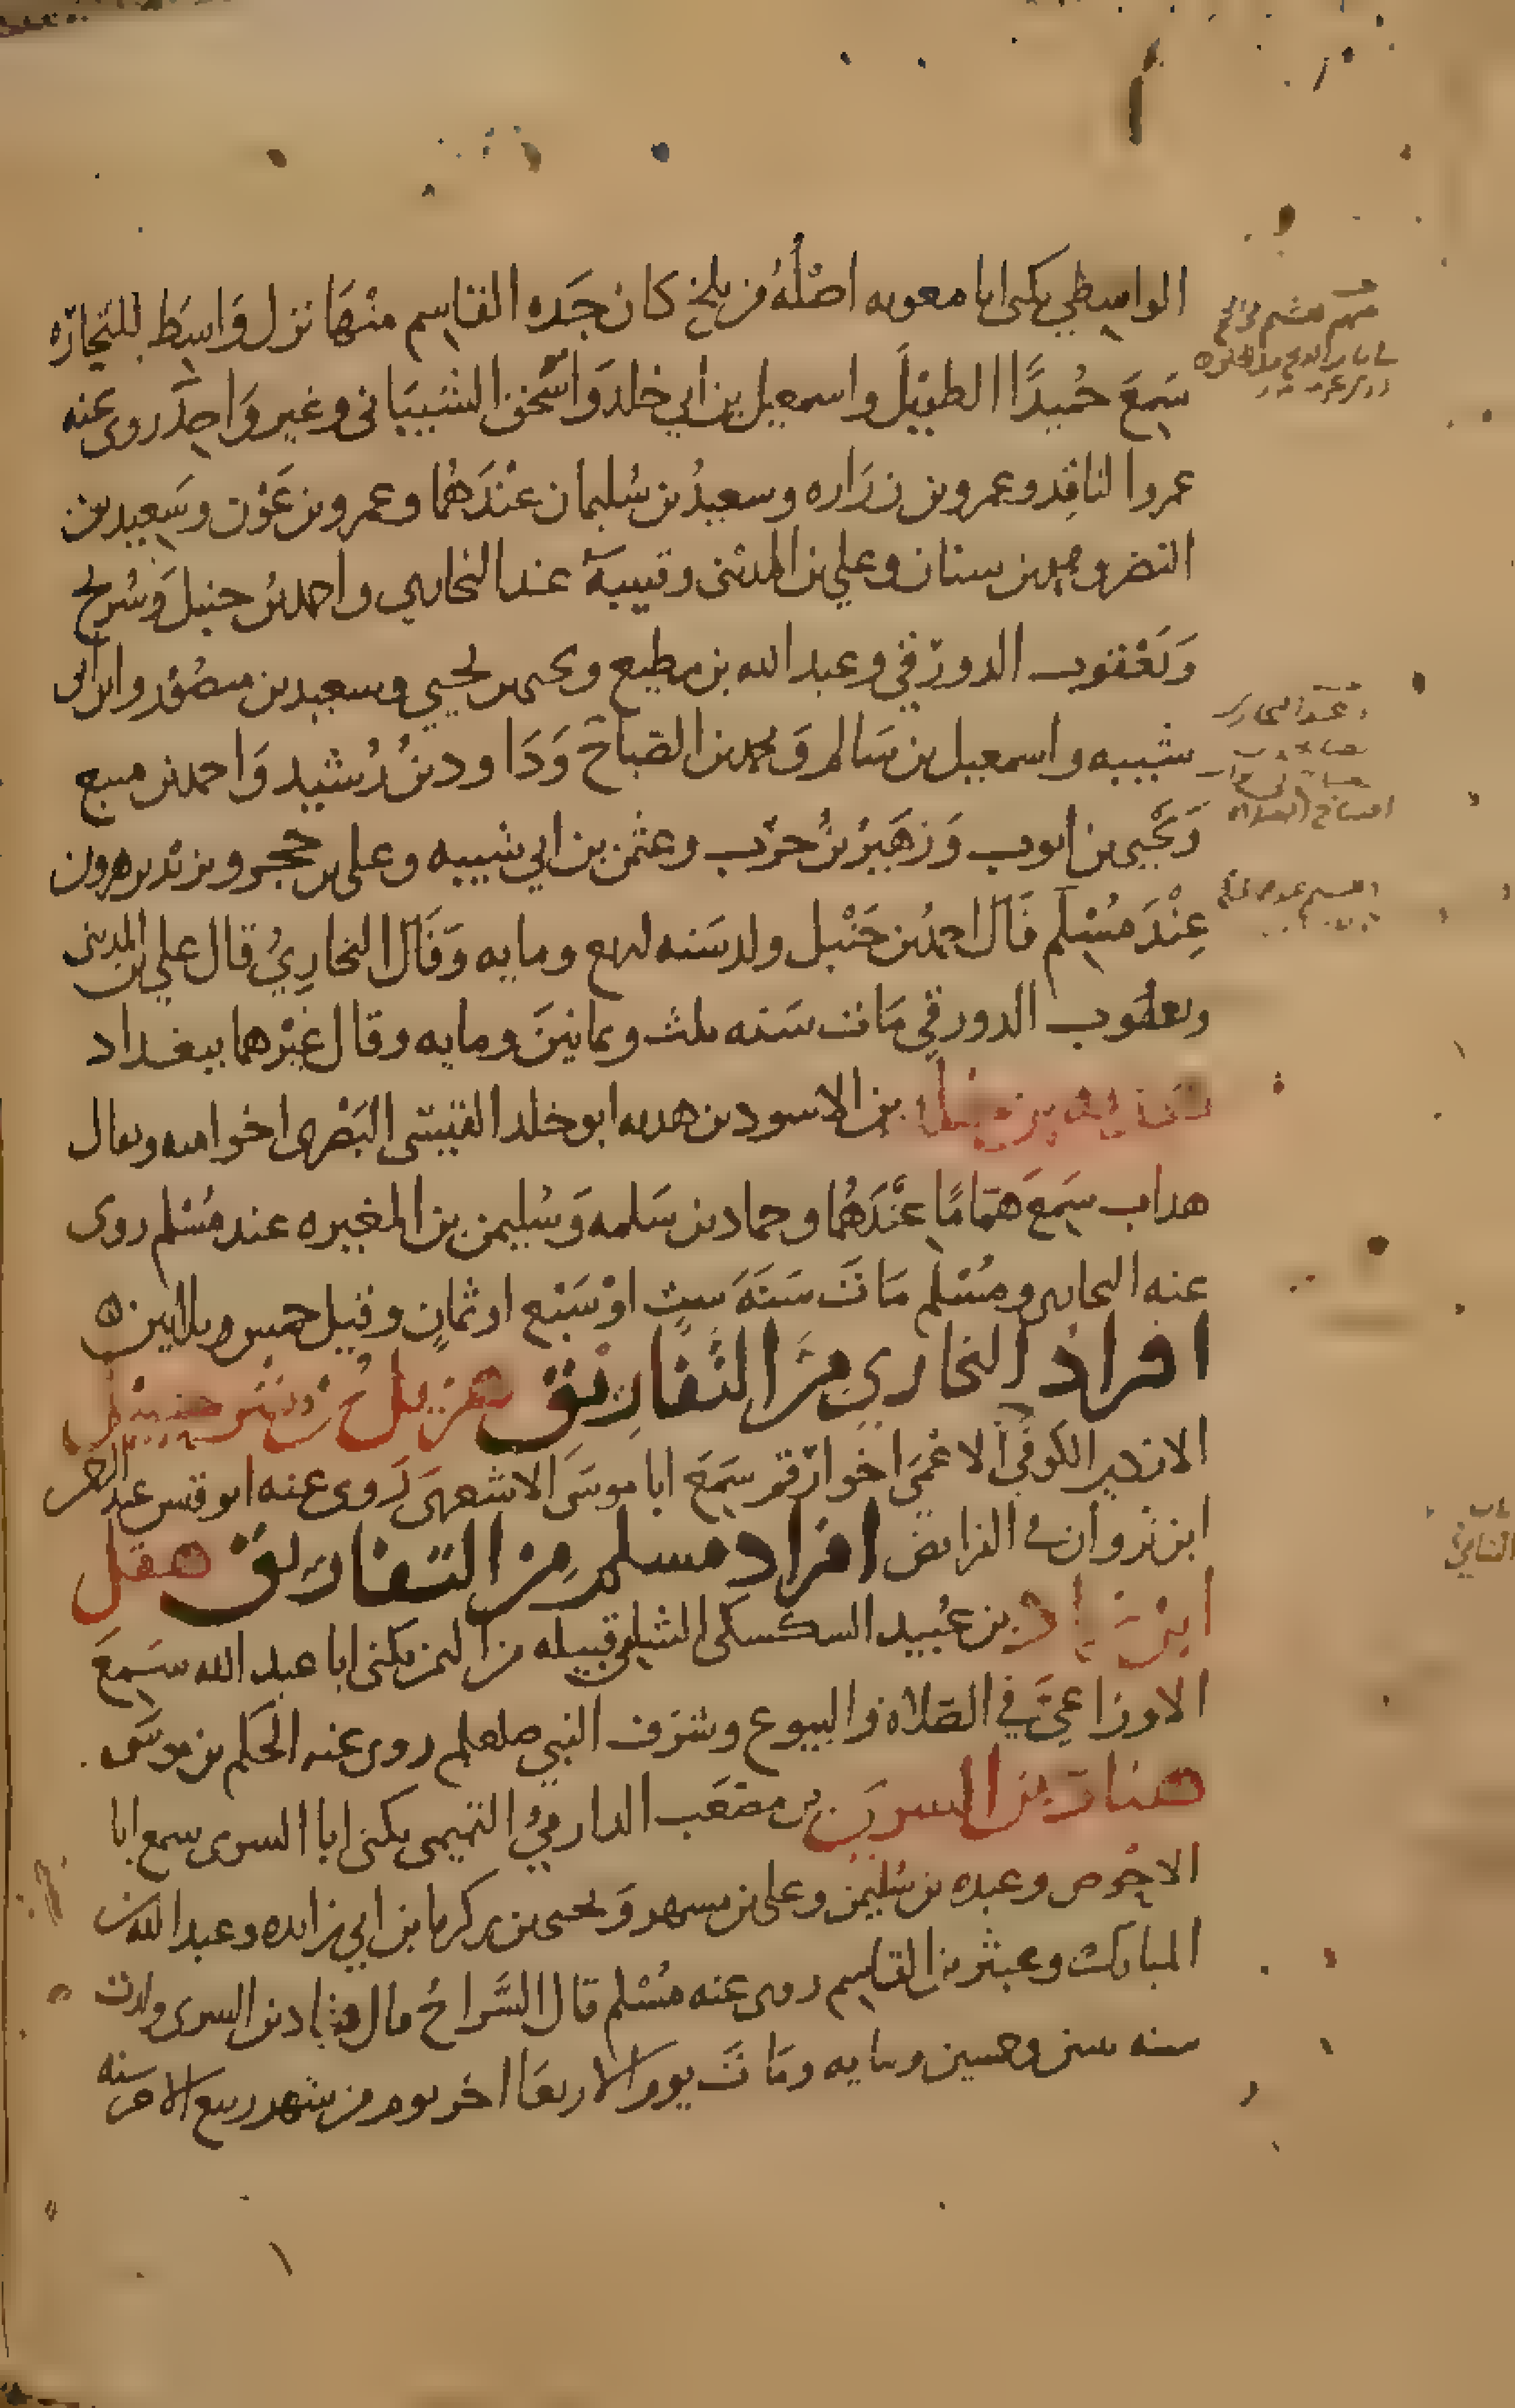 الواسطي يكنى ابا معويه اصْلُهُ من بلخ كان جَده القاسِم منْهَا نزل وَاسِط للتجارَه
سَمِعَ حُميدًا الطويل واسمعيل بن أبي خلد وَاسْحٰق الشيبَانى وغير وَاحِد روى عنه
عمروا لناقِد وعمرو بن زرَاره وسعيدُ بن سُليمان عنْدَهُما وعمرو بن عَوْن وسَعِيد بن
النضر ومحمد بن سنان وعلي بن المدينى وقتيبةُ عند البخاري واحمد بن حنبل وَسُريج
وَيَعْقوب الدورَقي وعبد الله بن مطيع ويحيى بن يحيي وسعيد بن منصُوْر وابن أبي
شيبه واسمعيل بن سَالم وَمحمد بن الصبَاح وَدَاود بنُ رُشيد وَاحمد بن منيع
وَيَحْيى بن ايوب وَزهَيْرُ بنُ حرْب وعثمٰن بن ابي شيبه وعلى بن حجر ويزيد بن هرون
عِنْدَ مُسْلم قَالَ احمدُ بن حَنْبل ولد سَنه اربع ومايه وَقَالَ البخارِيُ قال علي بن المدينى
ويعقوب الدورقي مَات سَنه ثلث وثمانينَ ومايه وقال غيْرهما ببغداد
بن الاسود بن هدبه ابو خلد القيسى البَصْرى اخوا اميه ويقال
هداب سَمِعَ همَّامًا عنْدَهُما وحماد بن سَلمه وَسُليمٰن بن المغيره عند مُسْلم روى
عنه البخارى ومُسْلم مَاتَ سَنَهَ ستٍ اوْ سَبْع او ثمانٍ وقيل خمس وثلاثين ه
افرادُ البخاري منَ التَّفاريق هُزيلُ بن شرحبيل
الازدي الكوفيُّ الاعْمَى اخوا ارقم سَمِعَ ابا موسَى الاشعرى رَوى عنه ابو قيس عبد الرحمن
ابن ثروان في الفرايض افراد مسلم من التفاريق هقل
ابن زياد بن عُبيد السكسكى قبيله من اليمن يكنى ابا عبد الله سَمِعَ
الاوزاعيَّ في الصَّلاه والبيوع وشرَف النبي صلعلم روى عنه الحكم بن موسَى
هناد بن السري بن مصْعَب الدارميُ التميمى يكنى ابا السرى سمع ابا
الاحْوص وعبده بن سُليمٰن وعلى بن مسهر وَيحيى بن زكريا بن ابي زايده وعبد الله بن
المبارك وعبثر بن القاسِم روى عنه مُسْلم قال السَّراجُ قال هناد بن السرى ولدت
سنه ثنتين وخمسين ومايه ومَاتَ يوم الاربعَا اخر يوم من شهر ربيع الاخر سنه